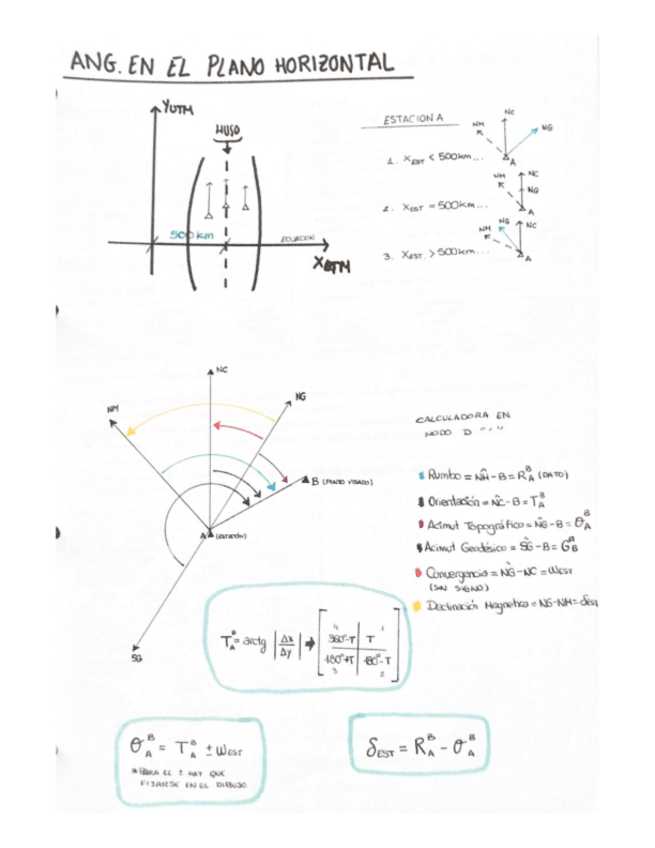 ANG. EN EL PLANO HORIZONTAL
YUTM
HUSO
500 km
ECUADOR
XUTM
ESTACION A
NM
NC
NG
A
1. XEST < 500km...
NM
NC
NG
A
2. XEST = 500km...
NM
NG
NC
A
3. XEST. > 500km...
NC
NM
NG
B (PUNTO VISADO)
A (ESTACIÓN)
SG
CALCULADORA EN
MODO D ° ' "
Rumbo = NM - B = R_A^B (DATO)
Orientación = NC - B = T_A^B
Acimut Topográfico = NG - B = θ_A^B
Acimut Geodésico = SG - B = G_B^A
Convergencia = NG - NC = WEST
(SIN SIGNO)
Declinación Magnetica = NG - NM = δEST
T_A^B = arctg |Δx/Δy| → [
4 1
360°-T T
180°+T 180°-T
3 2
]
θ_A^B = T_A^B ± WEST
* PARA EL ± HAY QUE
FIJARSE EN EL DIBUJO
δEST = R_A^B - θ_A^B